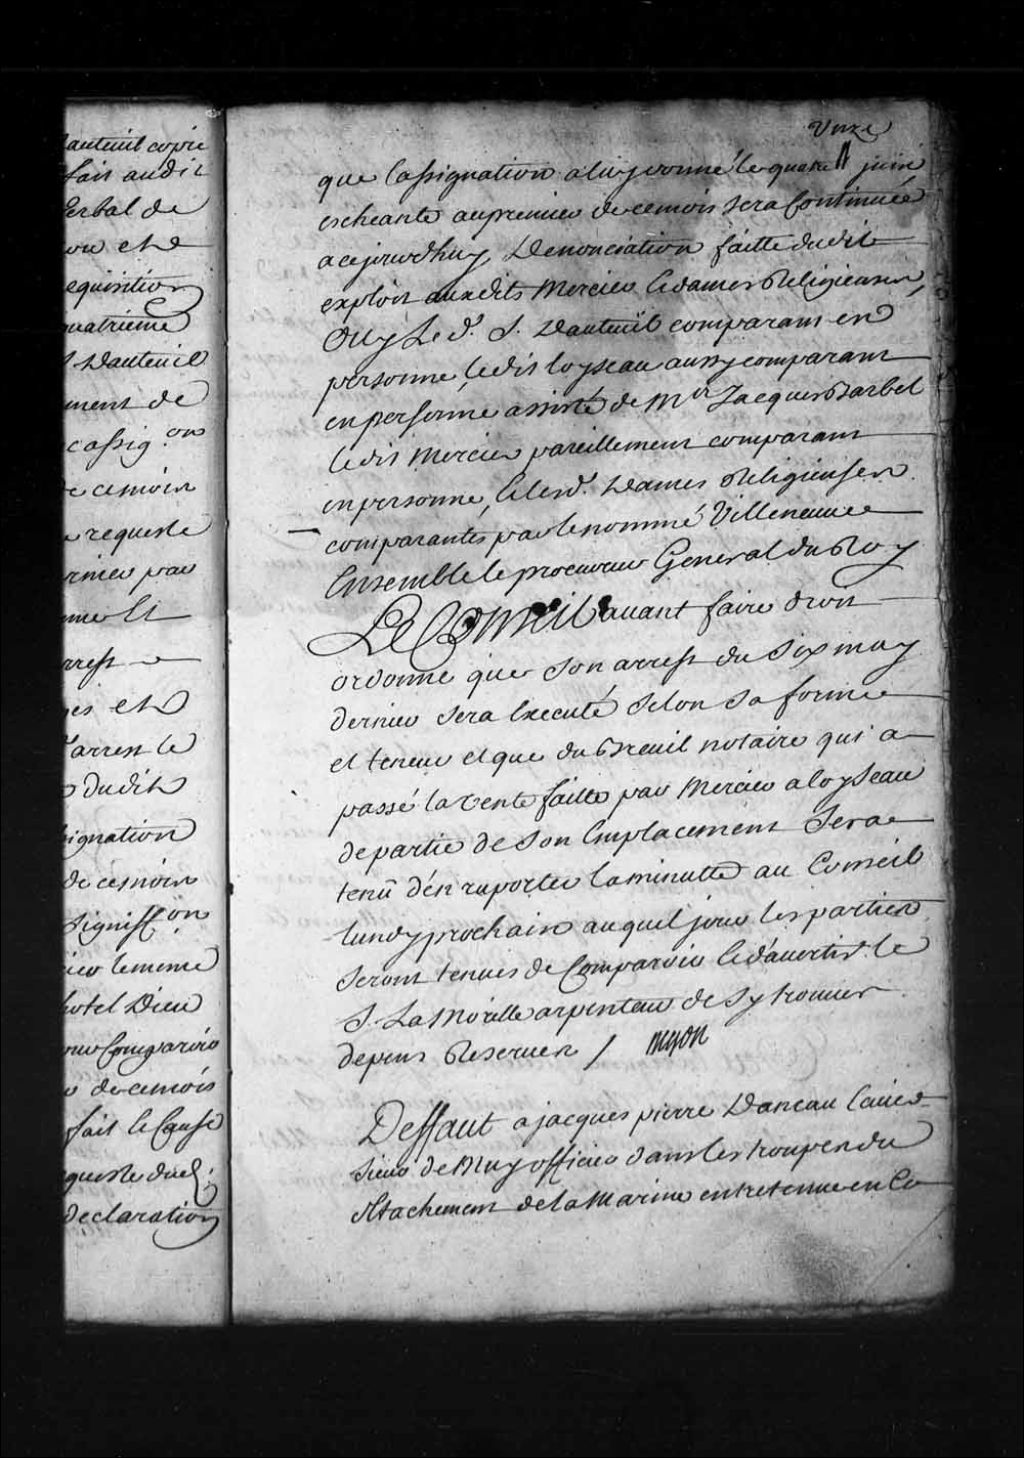 dauteuil copie
fait audit
verbal de
ou et de
equisition
quatrieme
S. Dauteuil
ment de
cassig.on
de cemois
a requeste
rmier par
nne Et
arrest
ges et
arrest le
dudit
signation
de cemois
Signiff.on
ier lememe
hotel Dieu
our Comparoir
de cemois
fait le Causé
queste dud.
declaration
Unze
que lassignation a luy donné le quatre juin
escheante aupremier de cemois sera Continuée
acejourdhuy, Denonciation faitte dudit
exploit auxdits Mercier & dames Religieuses,
Ouy Le d. S. Dauteuil comparant en
personne, ledit loyseau aussy comparant
enpersonne assisté de Mtre Jacques Barbel
ledit Mercier pareillement comparant
enpersonne, & lesd. Dames Religieuses
comparantes par lenommé Villeneuve
Ensemble le procureur General du Roy
Le Conseil avant faire droit
ordonne que son arrest du Six may
dernier sera Executé selon sa forme
et teneur et que du Breuil notaire qui a
passé la vente faitte par Mercier a loyseau
de partie de son Emplacement Sera
tenû d'en raporter la minutte au Conseil
lundy prochain auquel jour les parties
seront tenues de Comparoir & d'avertir le
S. La Morille arpenteur de sy trouver
depens Reservez / Begon
Deffaut a jacques pierre Daneau Ecuier
Sieur de Muy officier dans les troupes du
détachement de la Marine entretenue en Ce